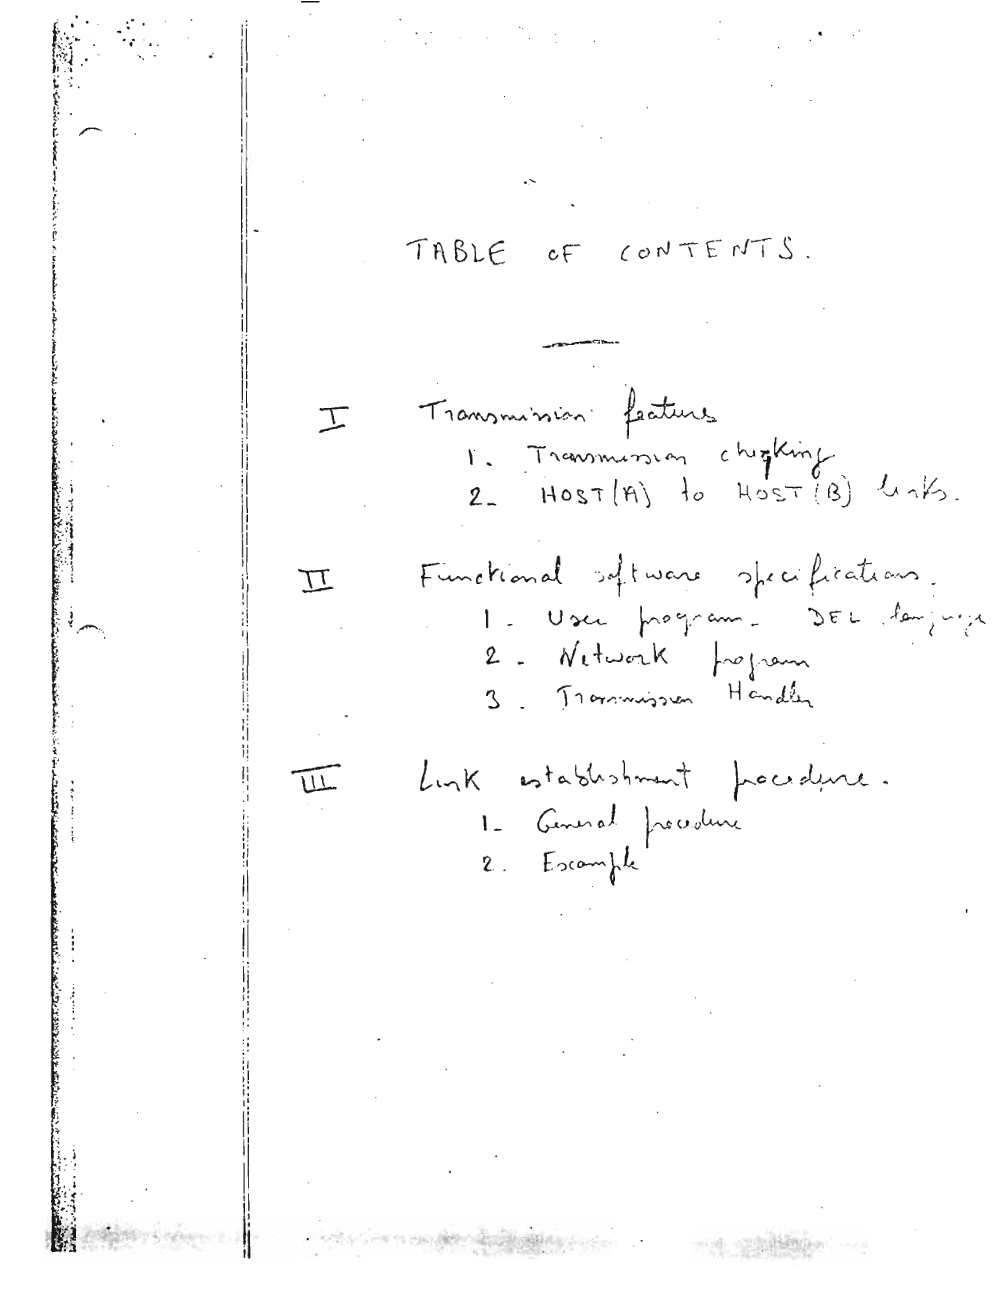 TABLE OF CONTENTS.
I Transmission features
1. Transmission checking
2- HOST(A) to HOST(B) links.
II Functional software specifications.
1 - User program - DEL language
2 - Network program
3 . Transmission Handler
III Link establishment procedure.
1- General procedure
2. Example